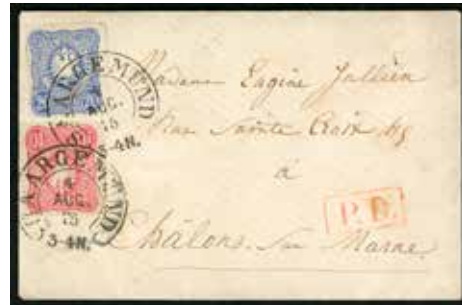 SAARGEMÜND
4 AUG. 75
3-4N.
SAARGEMÜND
4
AUG.
75
3-4N.
Madame Eugène Jullien
Rue Sainte Croix
à
P.D.
Châlons sur Marne